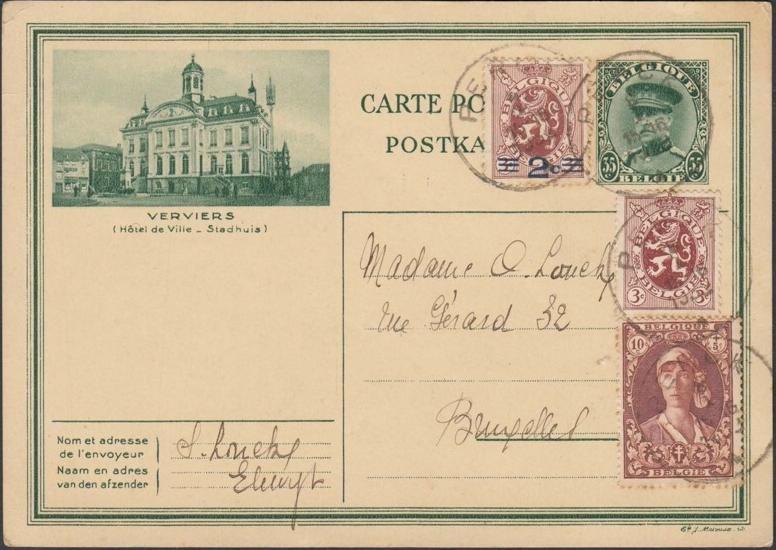 CARTE PO
POSTKA
BELGIQUE
3c 2c 3c
BELGIE
BELGIQUE
35 35
BELGIË
VERVIERS
(Hôtel de Ville _ Stadhuis)
BELGIQUE
3c 3c
BELGIË
Madame O. Louckx
rue Gérard 32
Bruxelles
BELGIQUE
10c +5c
BELGIE
Nom et adresse
de l'envoyeur
Naam en adres
van den afzender
Louckx
Elewyt